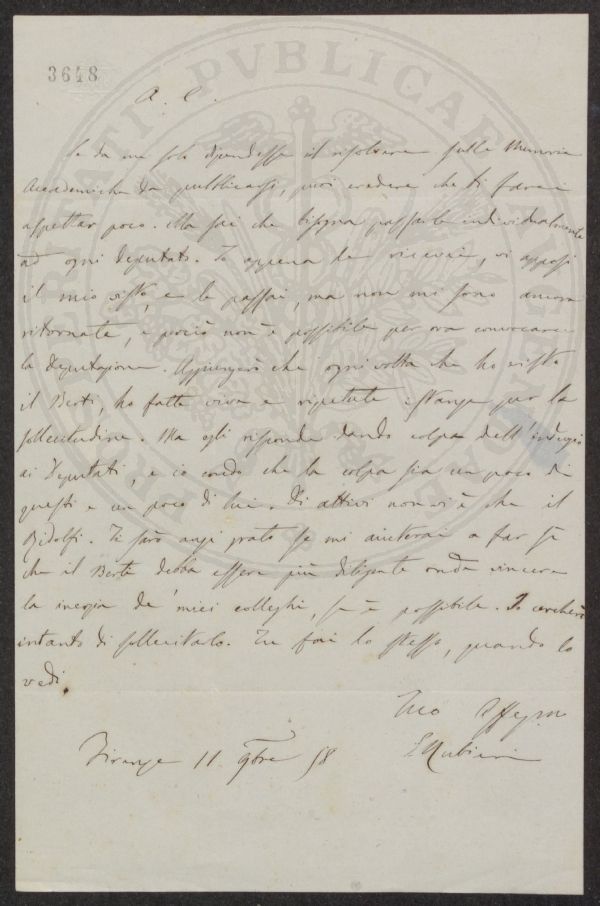 3648
A. C.
Se da me solo dipendesse il risolvere sulle Memorie
Accademiche da pubblicarsi, puoi credere che ti farei
aspettar poco. Ma sai che bisogna passarle individualmente
ad ogni Deputato. Io appena le ricevei, vi apposi
il mio visto, e le passai, ma non mi sono ancora
ritornate, e perciò non è possibile per ora convocare
la Deputazione. Aggiungerò che ogni volta che ho visto
il Berti, ho fatte vive e ripetute istanze per la
sollecitudine. Ma egli risponde dando colpa dell'indugio
ai Deputati, e io credo che la colpa sia un poco di
questi e un poco di lui. Di attivi non vi è che il
Ridolfi. Ti sarò anzi grato se mi aiuterai a far sì
che il Berti debba essere più diligente onde vincere
la inerzia de' miei colleghi, se è possibile. Io cercherò
intanto di sollecitarlo. Tu fai lo stesso, quando lo
vedi.
Tuo Affezmo
Firenze 11 9bre 58